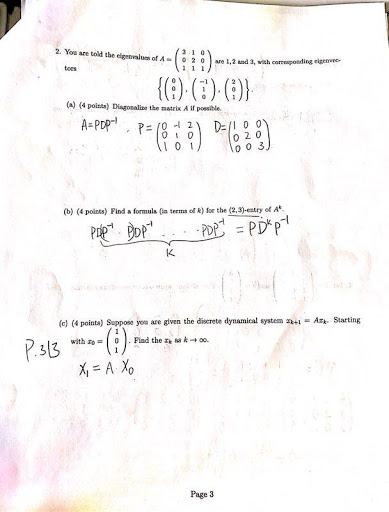 2. You are told the eigenvalues of A = ( 3 1 0 ; 0 2 0 ; 1 1 1 ) are 1, 2 and 3, with corresponding eigenvec-
tors
{ ( 0 0 1 ), ( -1 1 0 ), ( 2 0 1 ) }.
(a) (4 points) Diagonalize the matrix A if possible.
A=PDP⁻¹ . P = ( 0 -1 2 ; 0 1 0 ; 1 0 1 ) D = ( 1 0 0 ; 0 2 0 ; 0 0 3 )
(b) (4 points) Find a formula (in terms of k) for the (2,3)-entry of Aᵏ.
PDP⁻¹ · PDP⁻¹ . . . . · PDP⁻¹ = PDᵏP⁻¹
K
(c) (4 points) Suppose you are given the discrete dynamical system xₖ₊₁ = Axₖ. Starting
with x₀ = ( 1 0 1 ). Find the xₖ as k → ∞.
P.313
X₁ = A · X₀
Page 3